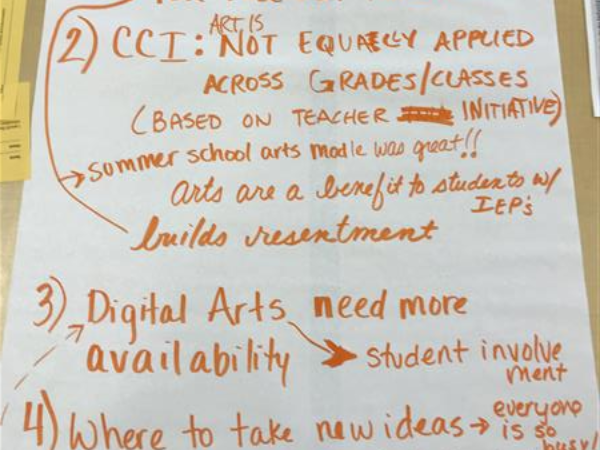 2) CCI: ART IS NOT EQUALLY APPLIED
ACROSS GRADES/CLASSES
(BASED ON TEACHER INITIATIVE)
summer school arts modle was great!!
arts are a benefit to students w/
IEP's
builds resentment
3) Digital Arts need more
availability → student involve
ment
4) Where to take new ideas → everyone
is so
busy!